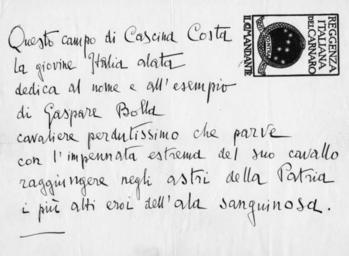 Questo campo di Cascina Costa
la giovine Italia alata
dedica al nome e all'esempio
di Gaspare Bolla
cavaliere perdutissimo che parve
con l'impennata estrema del suo cavallo
raggiungere negli astri della Patria
i più alti eroi dell'ala sanguinosa.
REGGENZA
ITALIANA
DEL CARNARO
IL COMANDANTE